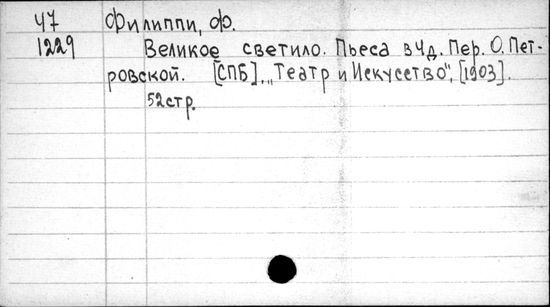 47 Филиппи, Ф.
1229 Великое светило. Пьеса в 4д. Пер. О. Пет-
ровской. [СПБ], „Театр и Искусство", [1903].
52стр.